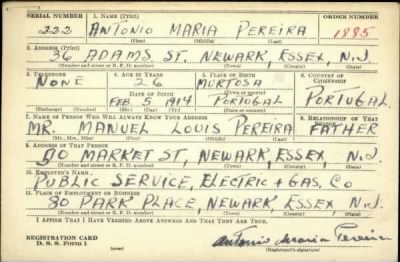 SERIAL NUMBER 1. NAME (Print) ORDER NUMBER
222 ANTONIO MARIA PEREIRA 1885
(First) (Middle) (Last)
2. ADDRESS (Print)
36 ADAMS ST. NEWARK, ESSEX, N.J.
(Number and street or R. F. D. number) (Town) (County) (State)
3. TELEPHONE 4. AGE IN YEARS 5. PLACE OF BIRTH 6. COUNTRY OF CITIZENSHIP
NONE 26 MURTOSA
DATE OF BIRTH (Town or county)
FEB 5 1914 PORTUGAL PORTUGAL
(Exchange) (Number) (Mo.) (Day) (Yr.) (State or country)
7. NAME OF PERSON WHO WILL ALWAYS KNOW YOUR ADDRESS 8. RELATIONSHIP OF THAT PERSON
MR. MANUEL LOUIS PEREIRA FATHER
(Mr., Mrs., Miss) (First) (Middle) (Last)
9. ADDRESS OF THAT PERSON
MARKET ST, NEWARK, ESSEX, N.J.
(Number and street or R. F. D. number) (Town) (County) (State)
10. EMPLOYER'S NAME
PUBLIC SERVICE, ELECTRIC + GAS. CO
11. PLACE OF EMPLOYMENT OR BUSINESS
80 PARK PLACE, NEWARK, ESSEX, N.J.
(Number and street or R. F. D. number) (Town) (County) (State)
I AFFIRM THAT I HAVE VERIFIED ABOVE ANSWERS AND THAT THEY ARE TRUE.
REGISTRATION CARD
D. S. S. Form 1 (over) Antonio Maria Pereira
(Registrant's signature)